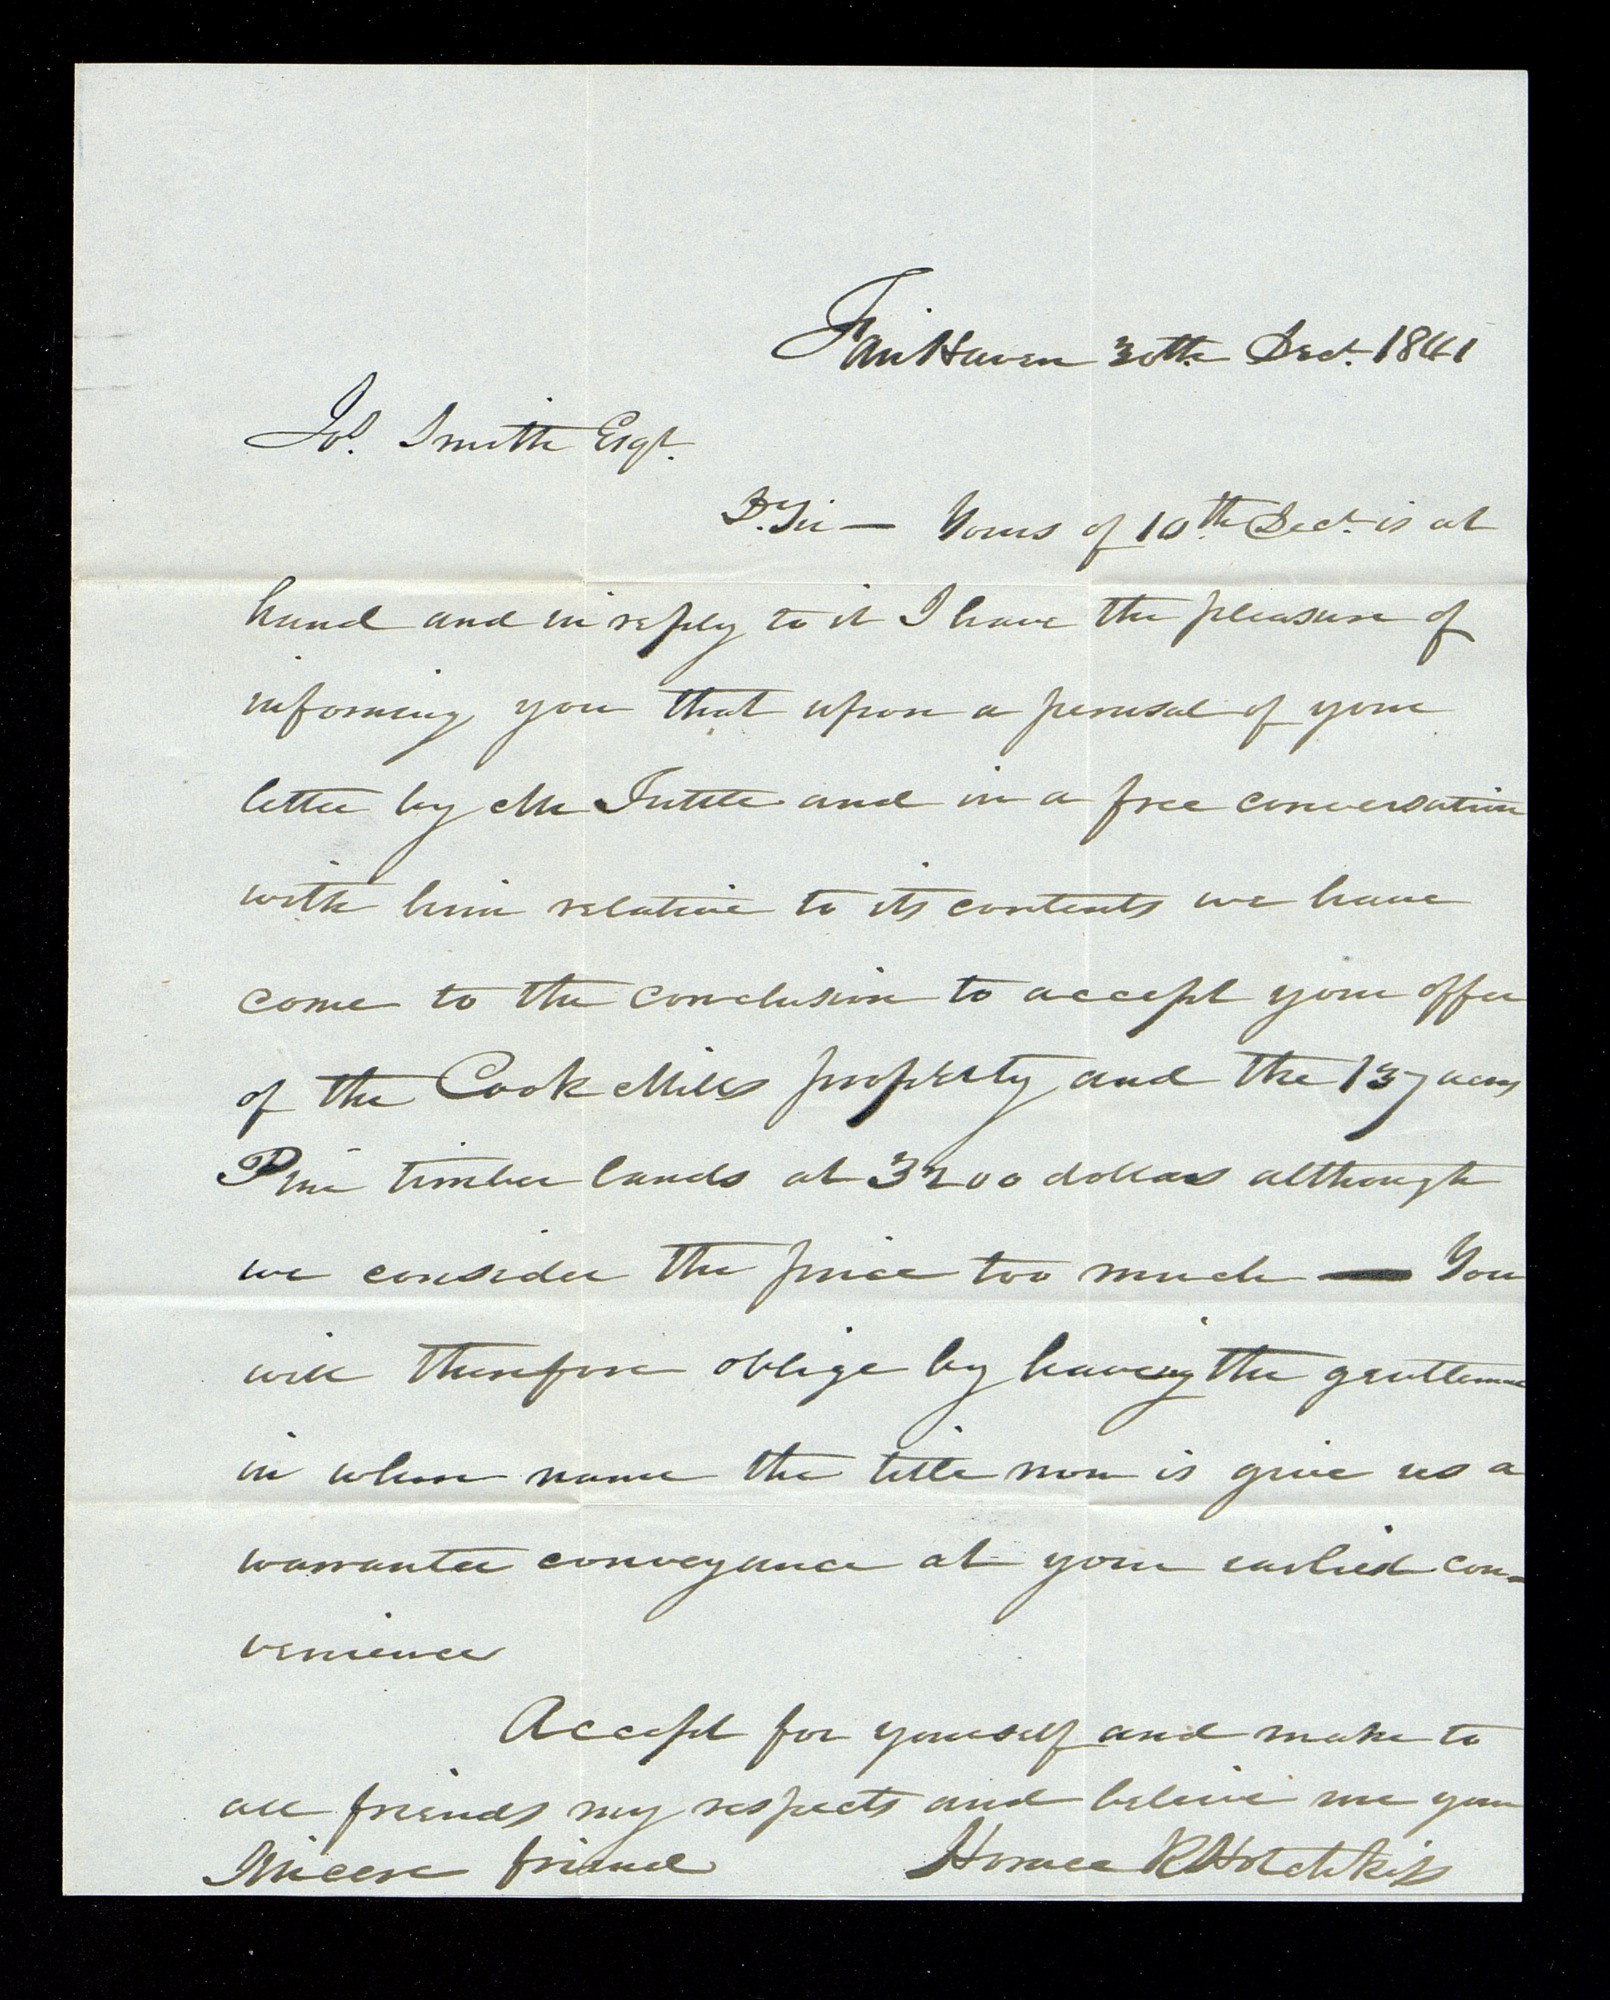 FairHaven 30th Dect. 1841
Jos. Smith Esqr.
Dr. Sir — Yours of 10th. Dect. is at
hand and in reply to it I have the pleasure of
informing you that upon a perusal of your
letter by Mr Tuttle and in a free conversation
with him relative to its contents we have
come to the conclusion to accept your offer
of the Cook Mills property and the 137 acres
Pine timber lands at 3200 dollars although
we consider the price too much — You
will therefore oblige by having the gentleman
in whose name the title now is give us a
warrantee conveyance at your earliest con-
venience
Accept for yourself and make to
all friends my respects and believe me your
Sincere friend Horace R Hotchkiss